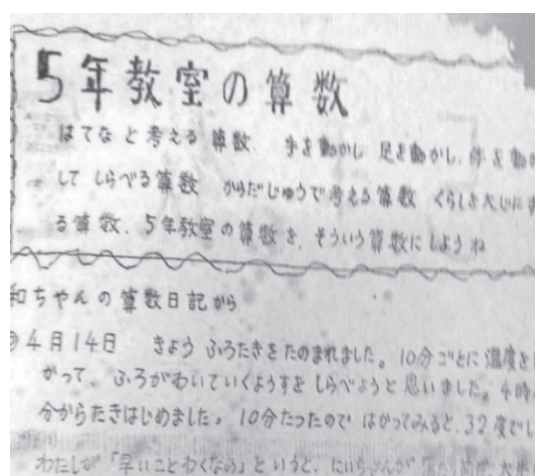 5年教室の算数
はてなと考える算数. 手を動かし 足を動かし. 体を動か
して しらべる算数 からだじゅうで考える算数 くらしを大じにす
る算数. 5年教室の算数を. そういう算数にしようね
和ちゃんの算数日記から
4月14日 きょう ふろたきをたのまれました。10分ごとに温度を
かって、ふろがわいていくようすを しらべようと思いました。4時
分からたきはじめました。10分たったので はかってみると、32度でし
わたしが「早いことわくなあ」というと、にいちゃんが